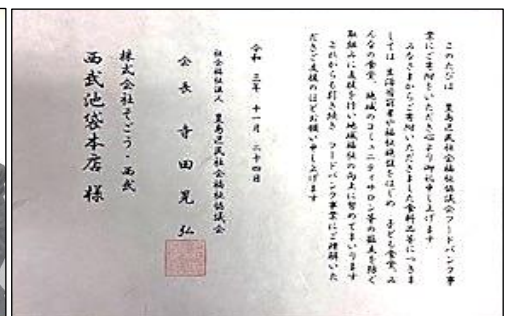 このたびは 豊島区民社会福祉協議会フードバンク事
業にご寄附をいただき心より御礼申し上げます
みなさまからご寄附いただきました食料品等につきま
しては 生活困窮者や福祉施設をはじめ 子ども食堂、み
んなの食堂、地域のコミュニティサロン等の孤立を防ぐ
取組みに支援を行い地域福祉の向上に努めてまいります
これからも引き続き フードバンク事業にご理解いた
だきご支援のほどお願い申し上げます
令和 三年 十一月 二十四日
社会福祉法人 豊島区民社会福祉協議会
会長 寺田晃弘
株式会社そごう・西武
西武池袋本店 様